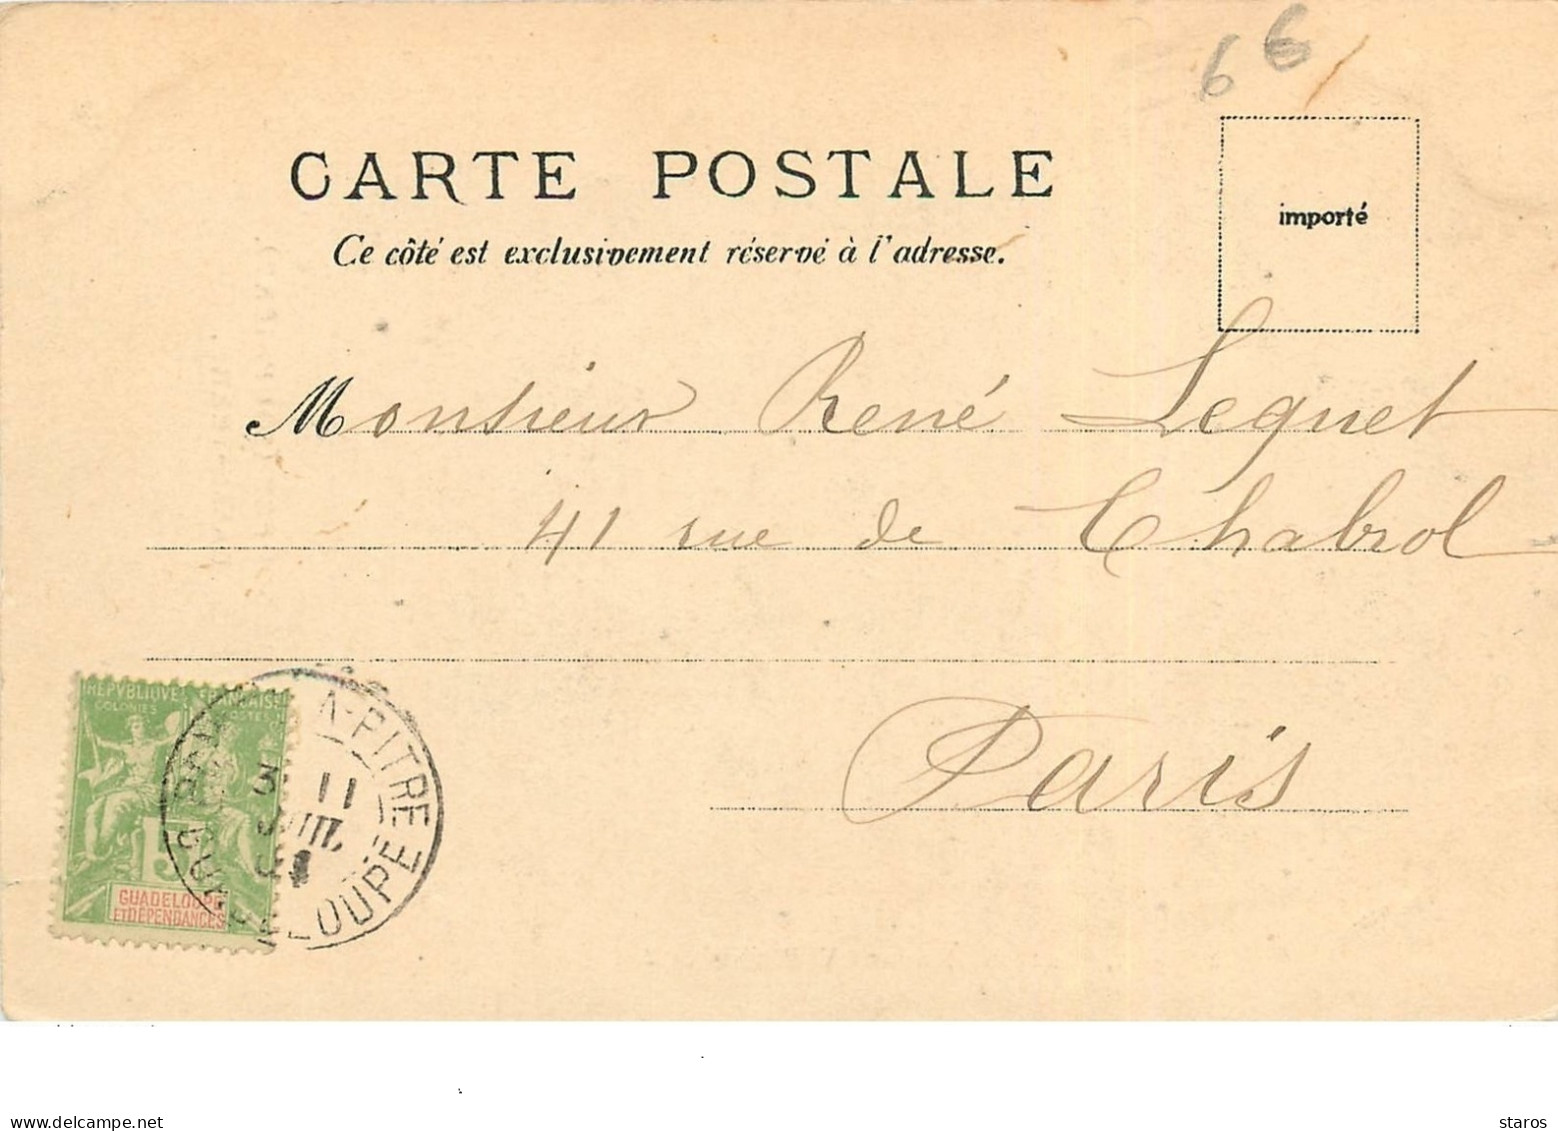 6 6
CARTE POSTALE
Ce côté est exclusivement réservé à l'adresse.
importé
Monsieur René Leguet
41 rue de Chabrol
Paris
REPVBLIQVE FRANÇAISE
COLONIES POSTES
5
GUADELOUPE
ET DÉPENDANCES
A-PITRE
3 11
JUIL
GUADELOUPE
delcampe.net
staros